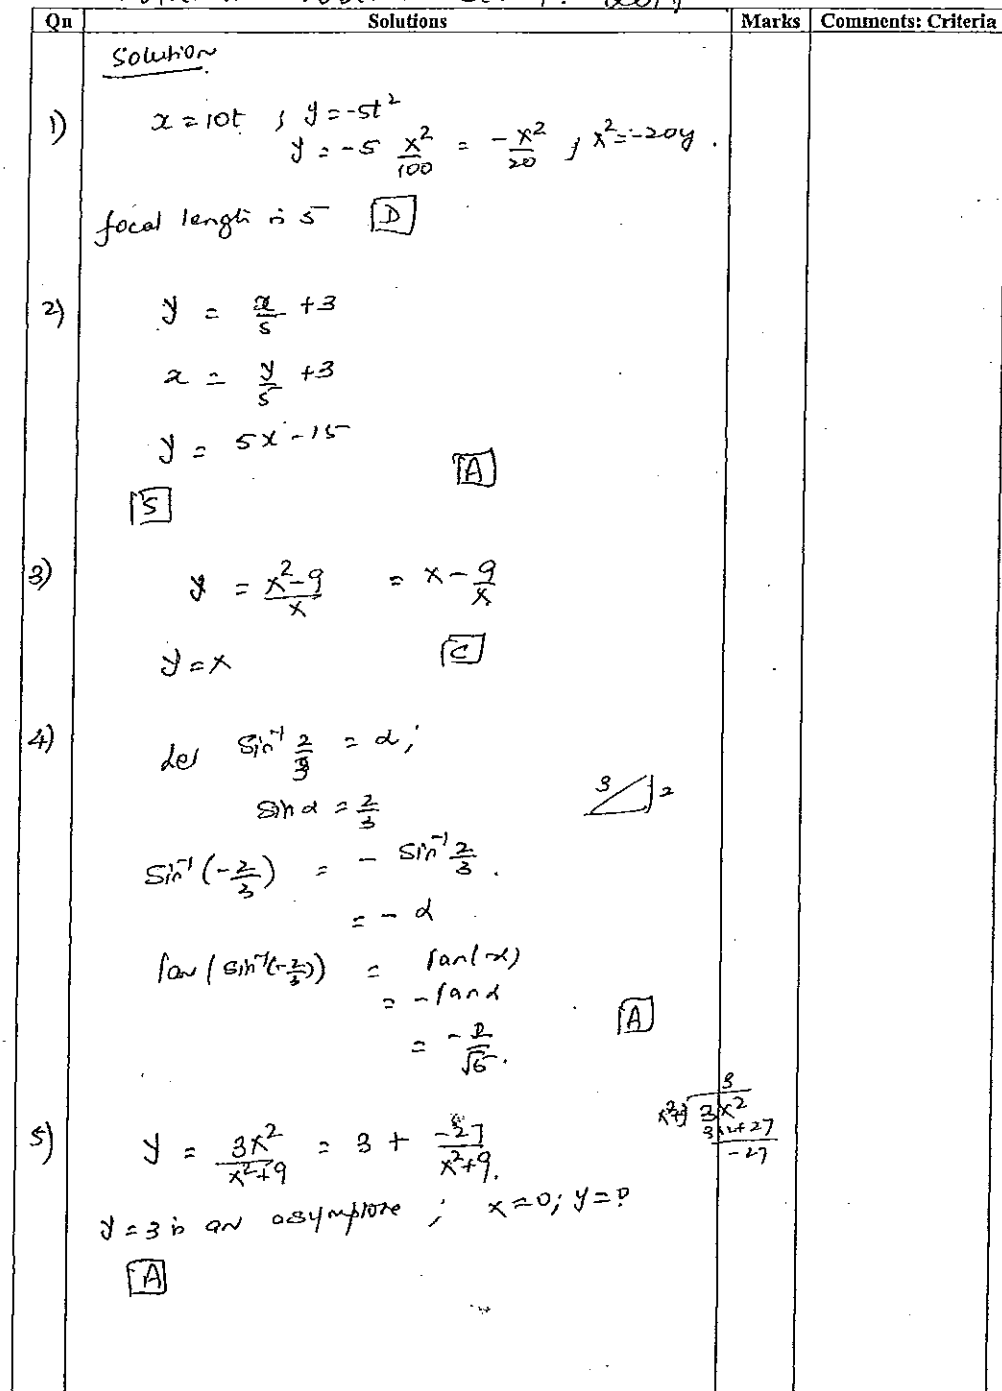 Qn Solutions Marks Comments: Criteria
Solution
1) x = 10t ; y = -5t²
y = -5 x²/100 = -x²/20 ; x² = -20y .
focal length is 5 [D]
2) y = x/5 + 3
x = y/5 + 3
y = 5x - 15
[A]
[5]
3) y = (x²-9)/x = x - 9/x
y = x [C]
4) let Sin⁻¹ 2/3 = α ;
Sin α = 2/3
3 2
Sin⁻¹(-2/3) = - Sin⁻¹ 2/3 .
= - α
tan(sin⁻¹(-2/3)) = tan(-α)
= -tan α
= -2/√5 . [A]
3
x²+9 3x²
3x²+27
-27
5) y = 3x²/(x²+9) = 3 + -27/(x²+9) .
y = 3 is an asymptote ; x = 0 ; y = 0
[A]